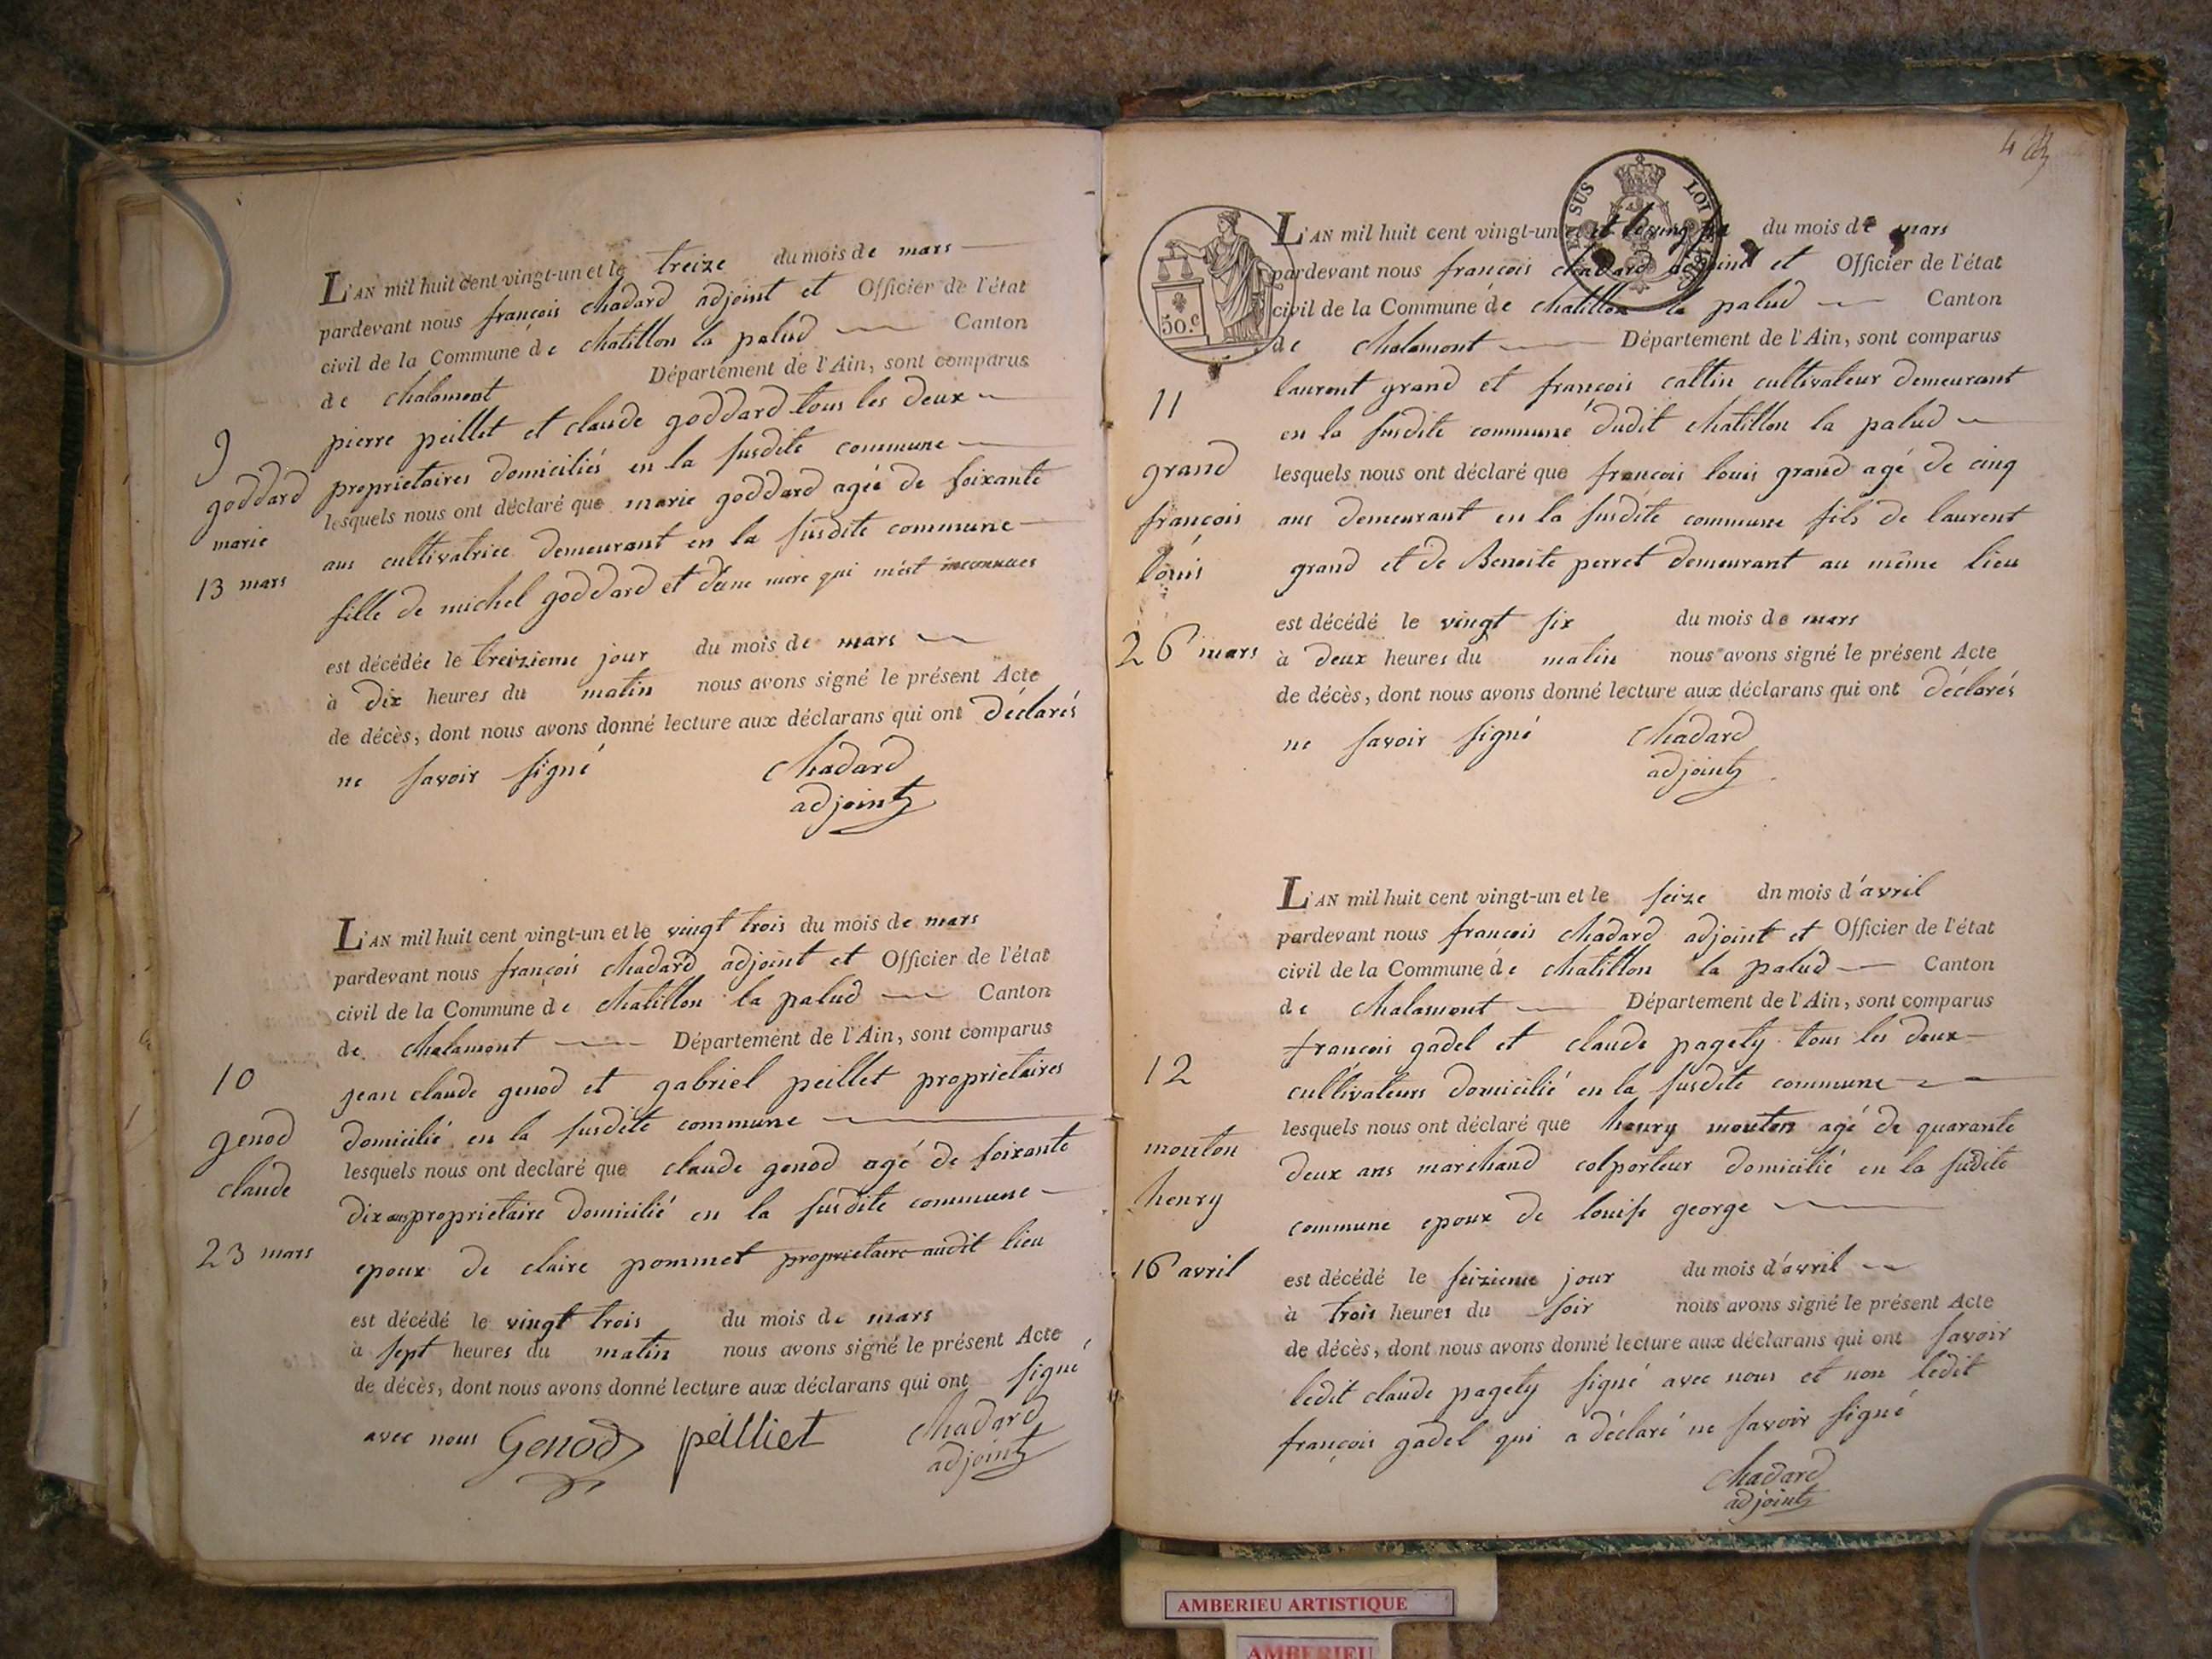 9
goddard
marie
13 mars
L'AN mil huit cent vingt-un et le treize du mois de mars
pardevant nous françois chadard adjoint et Officier de l'état
civil de la Commune de chatillon la palud Canton
de chalamont Département de l'Ain, sont comparus
pierre peillet et claude goddard tous les deux
proprietaires domiciliés en la susdite commune
lesquels nous ont déclaré que marie goddard agée de soixante
ans cultivatrice demeurant en la susdite commune
fille de michel goddard et d'une mere qui m'est inconnues
est décédée le treizieme jour du mois de mars
à dix heures du matin nous avons signé le présent Acte
de décès, dont nous avons donné lecture aux déclarans qui ont déclarés
ne savoir signé chadard
adjoint
10
genod
claude
23 mars
L'AN mil huit cent vingt-un et le vingt trois du mois de mars
pardevant nous françois chadard adjoint et Officier de l'état
civil de la Commune de chatillon la palud Canton
de chalamont Département de l'Ain, sont comparus
jean claude genod et gabriel peillet proprietaires
domicilié en la susdite commune
lesquels nous ont declaré que claude genod agé de soixante
dix ans proprietaire domicilié en la susdite commune
epoux de claire pommet proprietaire audit lieu
est décédé le vingt trois du mois de mars
à sept heures du matin nous avons signé le présent Acte
de décès, dont nous avons donné lecture aux déclarans qui ont signé
avec nous Genod peilliet chadard
adjoint
4
SUS LOI
50.c
11
grand
françois
louis
26 mars
L'AN mil huit cent vingt-un et le vingt six du mois de mars
pardevant nous francois chadard adjoint et Officier de l'état
civil de la Commune de chatillon la palud Canton
de chalamont Département de l'Ain, sont comparus
laurent grand et françois cattin cultivateur demeurant
en la susdite commune dudit chatillon la palud
lesquels nous ont déclaré que francois louis grand agé de cinq
ans demeurant en la susdite commune fils de laurent
grand et de Benoite perret demeurant au même lieu
est décédé le vingt six du mois de mars
à deux heures du matin nous avons signé le présent Acte
de décès, dont nous avons donné lecture aux déclarans qui ont déclarés
ne savoir signé chadard
adjoint
12
mouton
henry
16 avril
L'AN mil huit cent vingt-un et le seize dn mois d'avril
pardevant nous francois chadard adjoint et Officier de l'état
civil de la Commune de chatillon la palud Canton
de chalamont Département de l'Ain, sont comparus
francois gadel et claude pagety tous les deux
cultivateurs domicilié en la susdite commune
lesquels nous ont déclaré que henry mouton agé de quarante
deux ans marchand colporteur domicilié en la sudite
commune epoux de louise george
est décédé le seizieme jour du mois d'avril
à trois heures du soir nous avons signé le présent Acte
de décès, dont nous avons donné lecture aux déclarans qui ont savoir
ledit claude pagety signé avec nous et non ledit
françois gadel qui a déclaré ne savoir signé
chadard
adjoint
AMBERIEU ARTISTIQUE
AMBERIEU